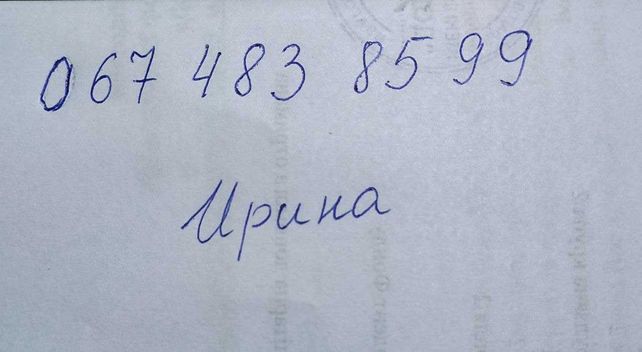 067 483 8599
Ирина